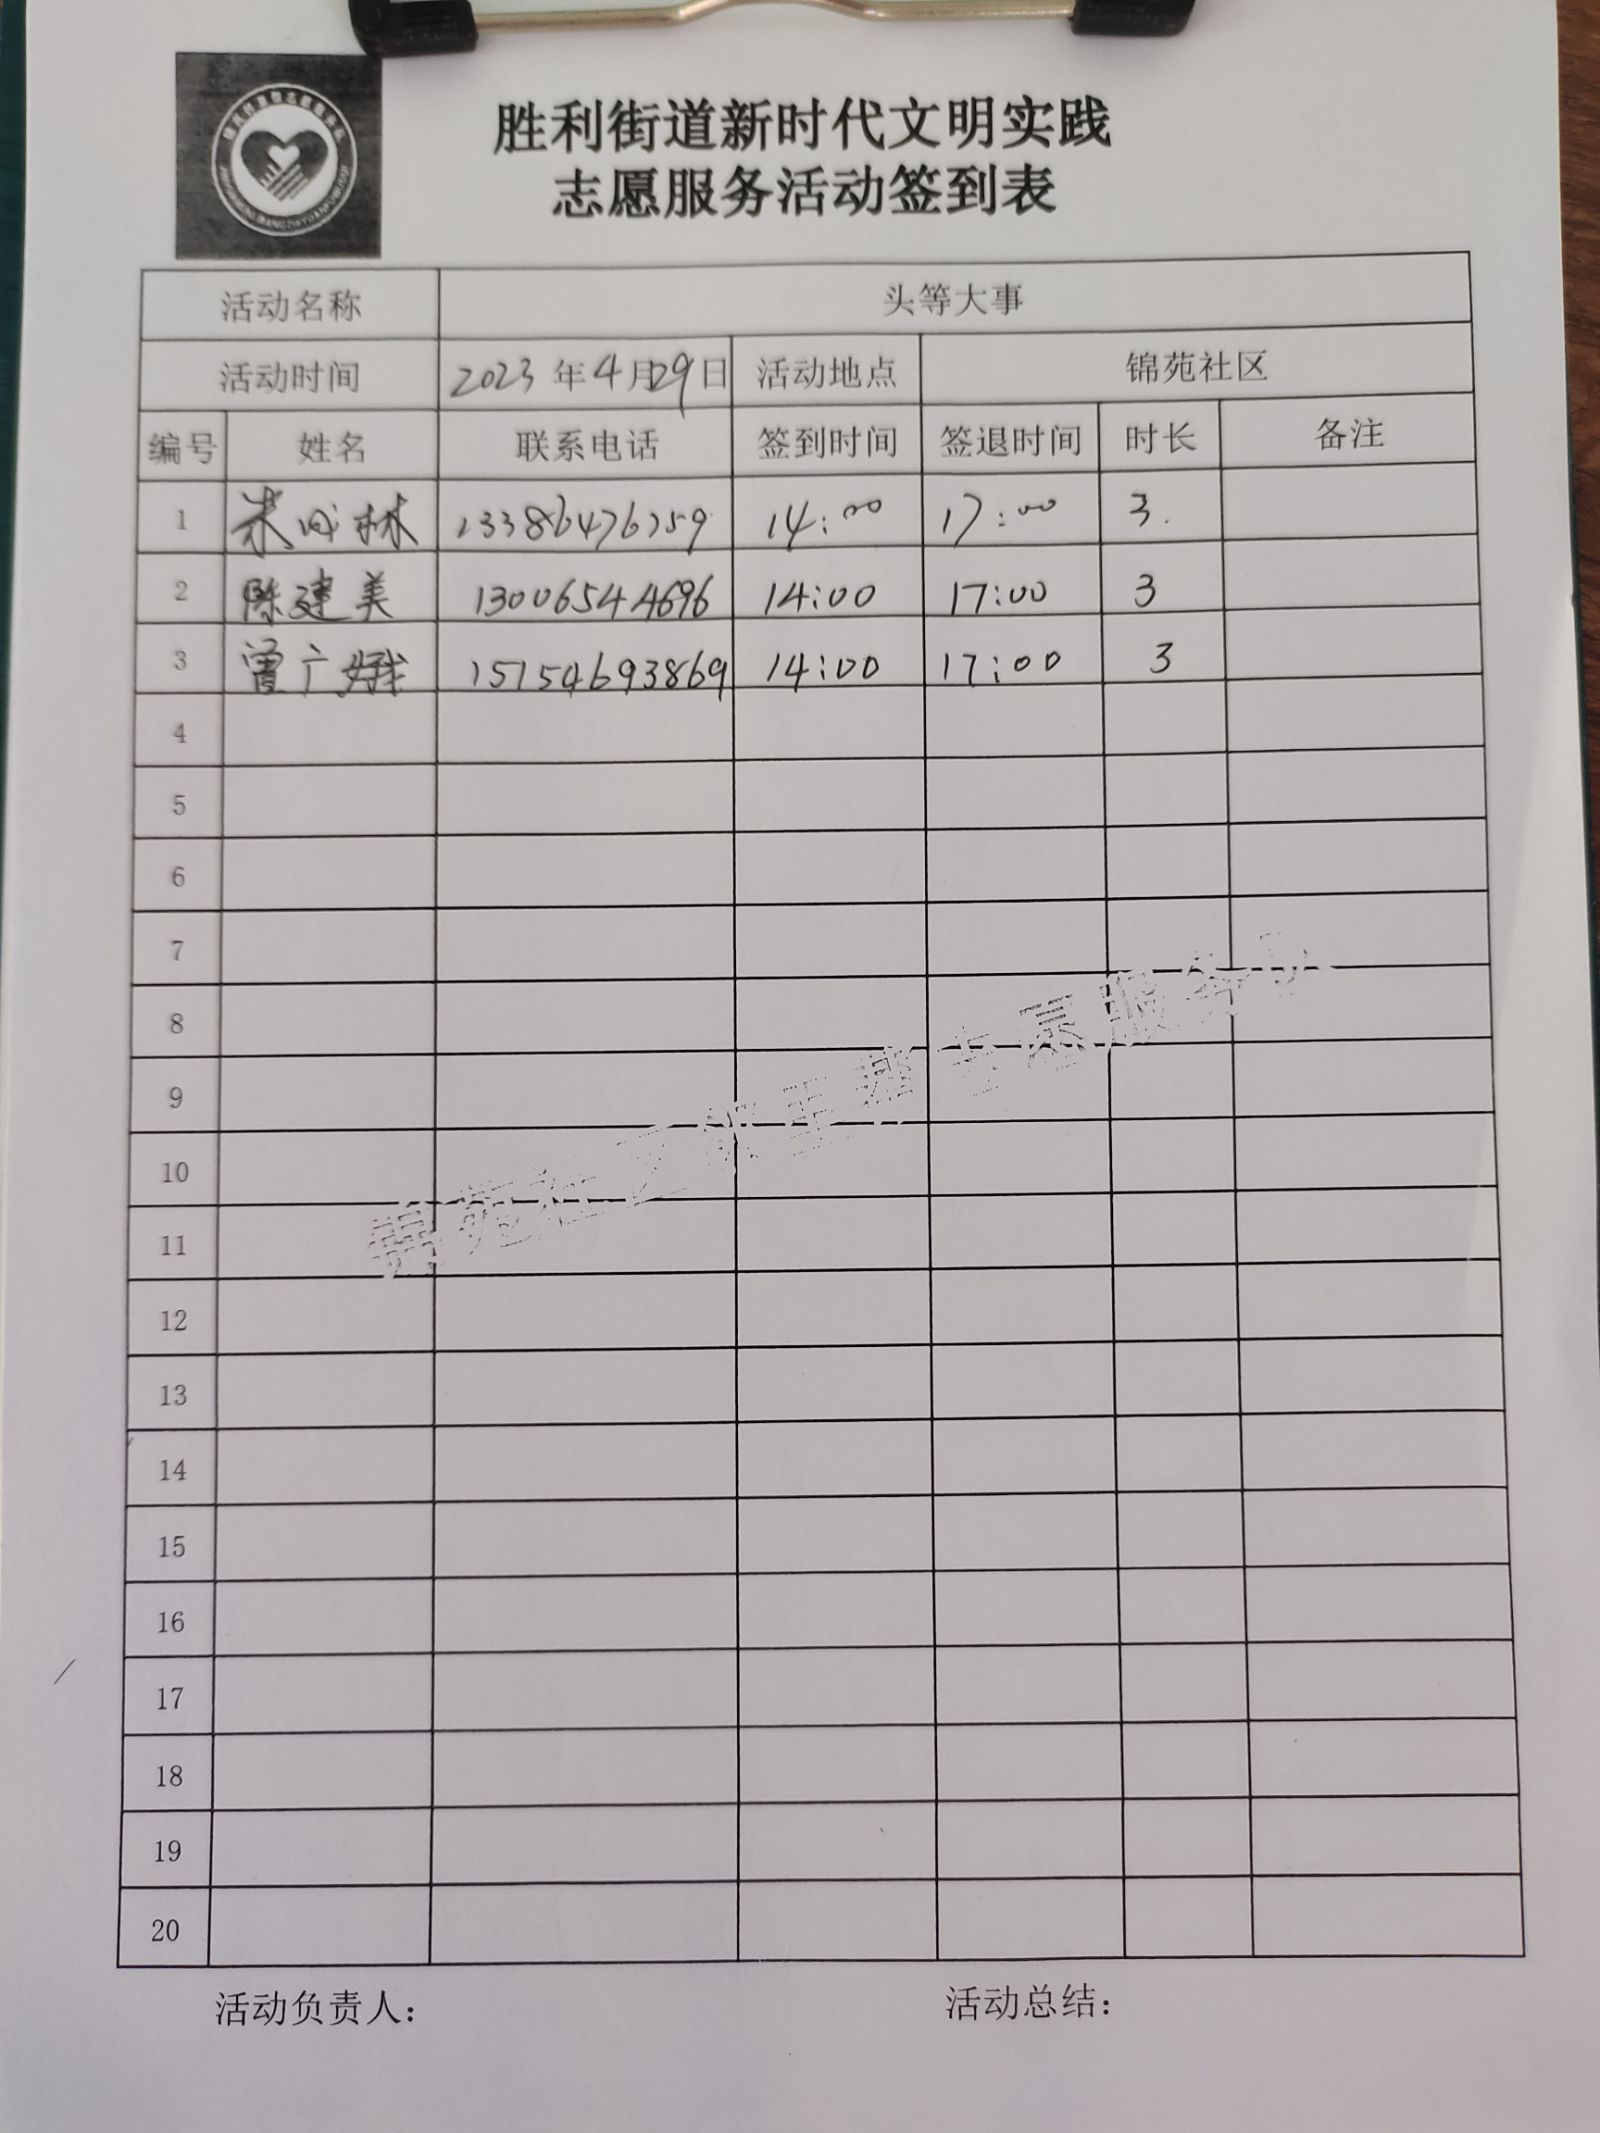 胜利街道新时代文明实践
志愿服务活动签到表
活动名称 头等大事
活动时间 2023年4月29日 活动地点 锦苑社区
编号 姓名 联系电话 签到时间 签退时间 时长 备注
1 林 14:00 17:00 3.
2 陈建美 13006544696 14:00 17:00 3
3 曾广娥 15754693869 14:00 17:00 3
4
5
6
7
8
9
10
11
12
13
14
15
16
17
18
19
20
活动负责人: 活动总结: